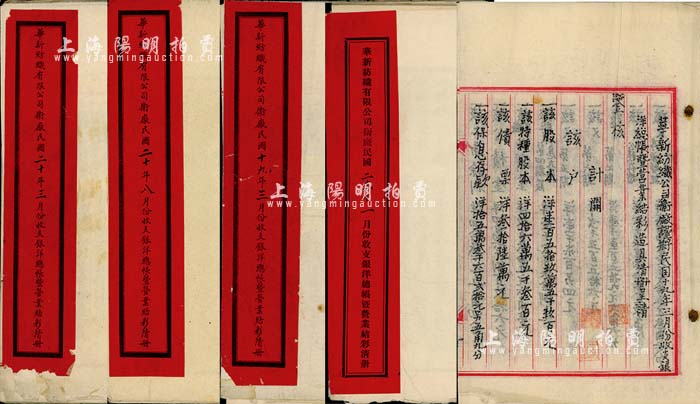 華新紡織有限公司衛廠民國二十年三月份收支銀洋總帳暨營業結彩清冊
華新紡織有限公司衛廠民國二十年八月份收支銀洋總帳暨營業結彩清冊
華新紡織有限公司衛廠民國十九年三月份收支銀洋總帳暨營業結彩清冊
華新紡織有限公司衛廠民國二
一月份收支銀洋總帳暨營業結彩清冊
華新紡織公司衛廠謹將民國十九年三月份收支銀
洋總帳暨營業結彩造具清冊呈請
鑒核
計開
該戶
一該股本
一該特種股本 洋四十六萬五千叁百元
一該債票 洋叁拾陸萬元
一該存息存款
上海陽明拍賣
www.yangmingauction.com
上海陽明拍賣
www.yangmingauction.com
上海陽明拍賣
www.yangmingauction.com
上海陽明拍賣
www.yangmingauction.com